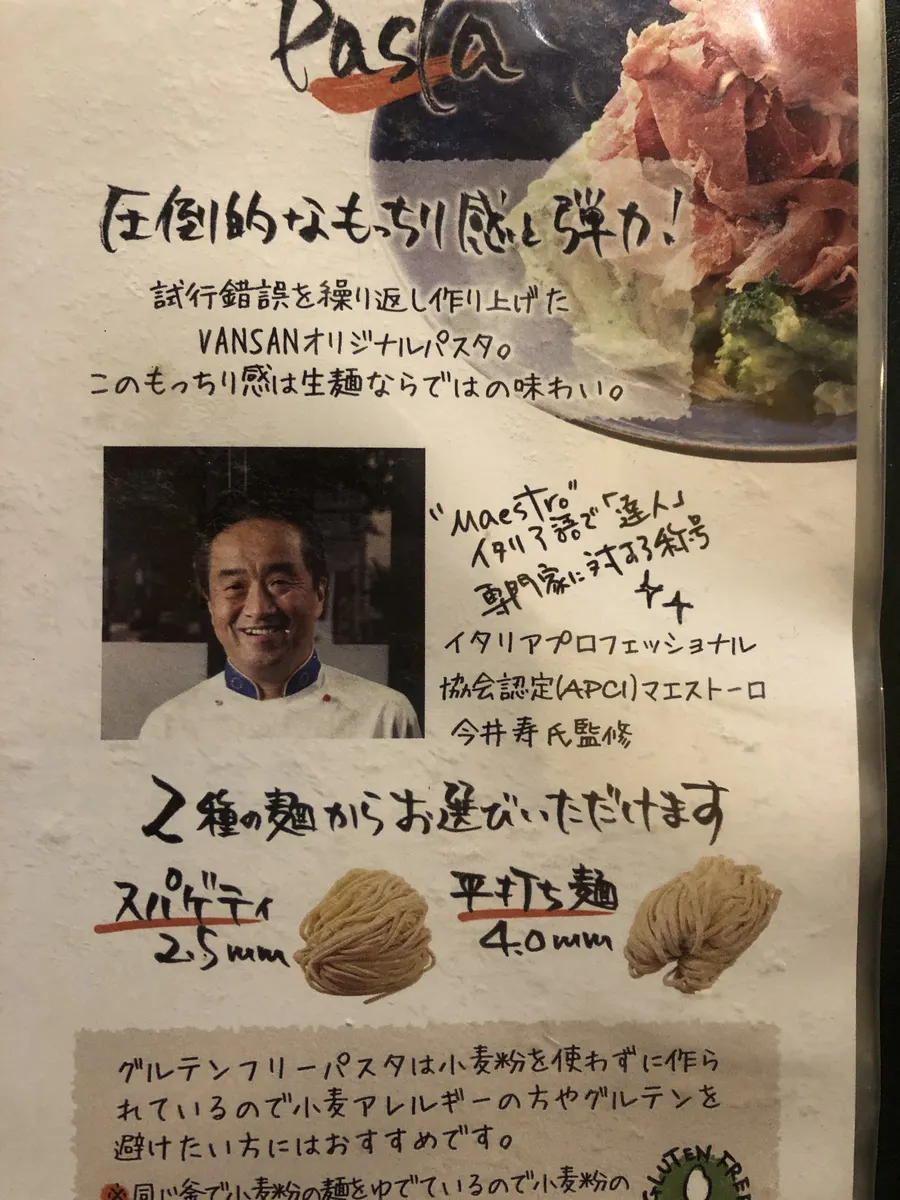 Pasta
圧倒的なもっちり感と弾力!
試行錯誤を繰り返し作り上げた
VANSANオリジナルパスタ。
このもっちり感は生麺ならではの味わい。
"Maestro"
イタリア語で「達人」
専門家に対する称号
イタリアプロフェッショナル
協会認定(APCI)マエストーロ
今井寿氏監修
2種の麺からお選びいただけます
スパゲティ
2.5mm
平打ち麺
4.0mm
グルテンフリーパスタは小麦粉を使わずに作ら
れているので小麦アレルギーの方やグルテンを
避けたい方にはおすすめです。
※同じ釜で小麦粉の麺をゆでているので小麦粉の
GLUTEN FREE